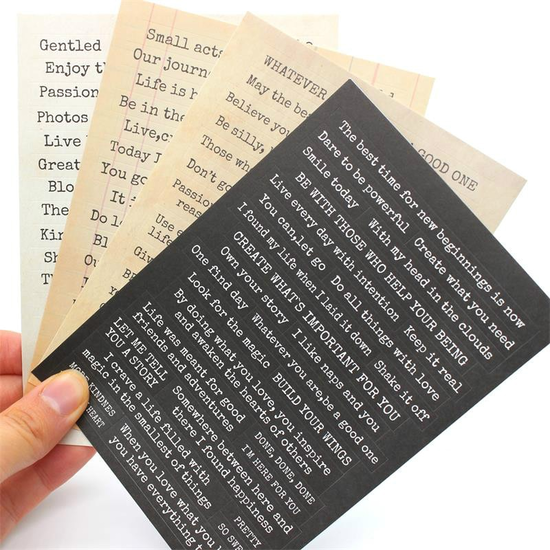 Gentled
Enjoy th
Passion
Photos
Live
Great
Blo
The
Kin
Sh
T
Small acts
Our journ
Life is
Be in the
Live,
Today
You go
It
Do
Bl
Do
Be
WHATEVER
GOOD ONE
May the be
Believe you
Be silly,
Those who
Don't go
Passion
reas
Use e
life
Giv
The best time for new beginnings is now
Dare to be powerful Create what you need
Smile today With my head in the clouds
BE WITH THOSE WHO HELP YOUR BEING
Live every day with intention Keep it real
You can,let go Do all things with love
I found my life when I laid it down Shake it off
CREATE WHAT'S IMPORTANT FOR YOU
Own your story I like naps and you
One find day Whatever you are,be a good one
Look for the magic BUILD YOUR WINGS
By doing what you love, you inspire
and awaken the hearts of others
Life was meant for good
friends and adventures
DONE, DONE, DONE
LET ME TELL
YOU A STORY
Somewhere between here and
there I found happiness
I'M HERE FOR YOU
I crave a life filled with
magic and the smallest of things
PRETTY
MORE KINDNES
HEART
When you love what you
you have everything
SO SWE